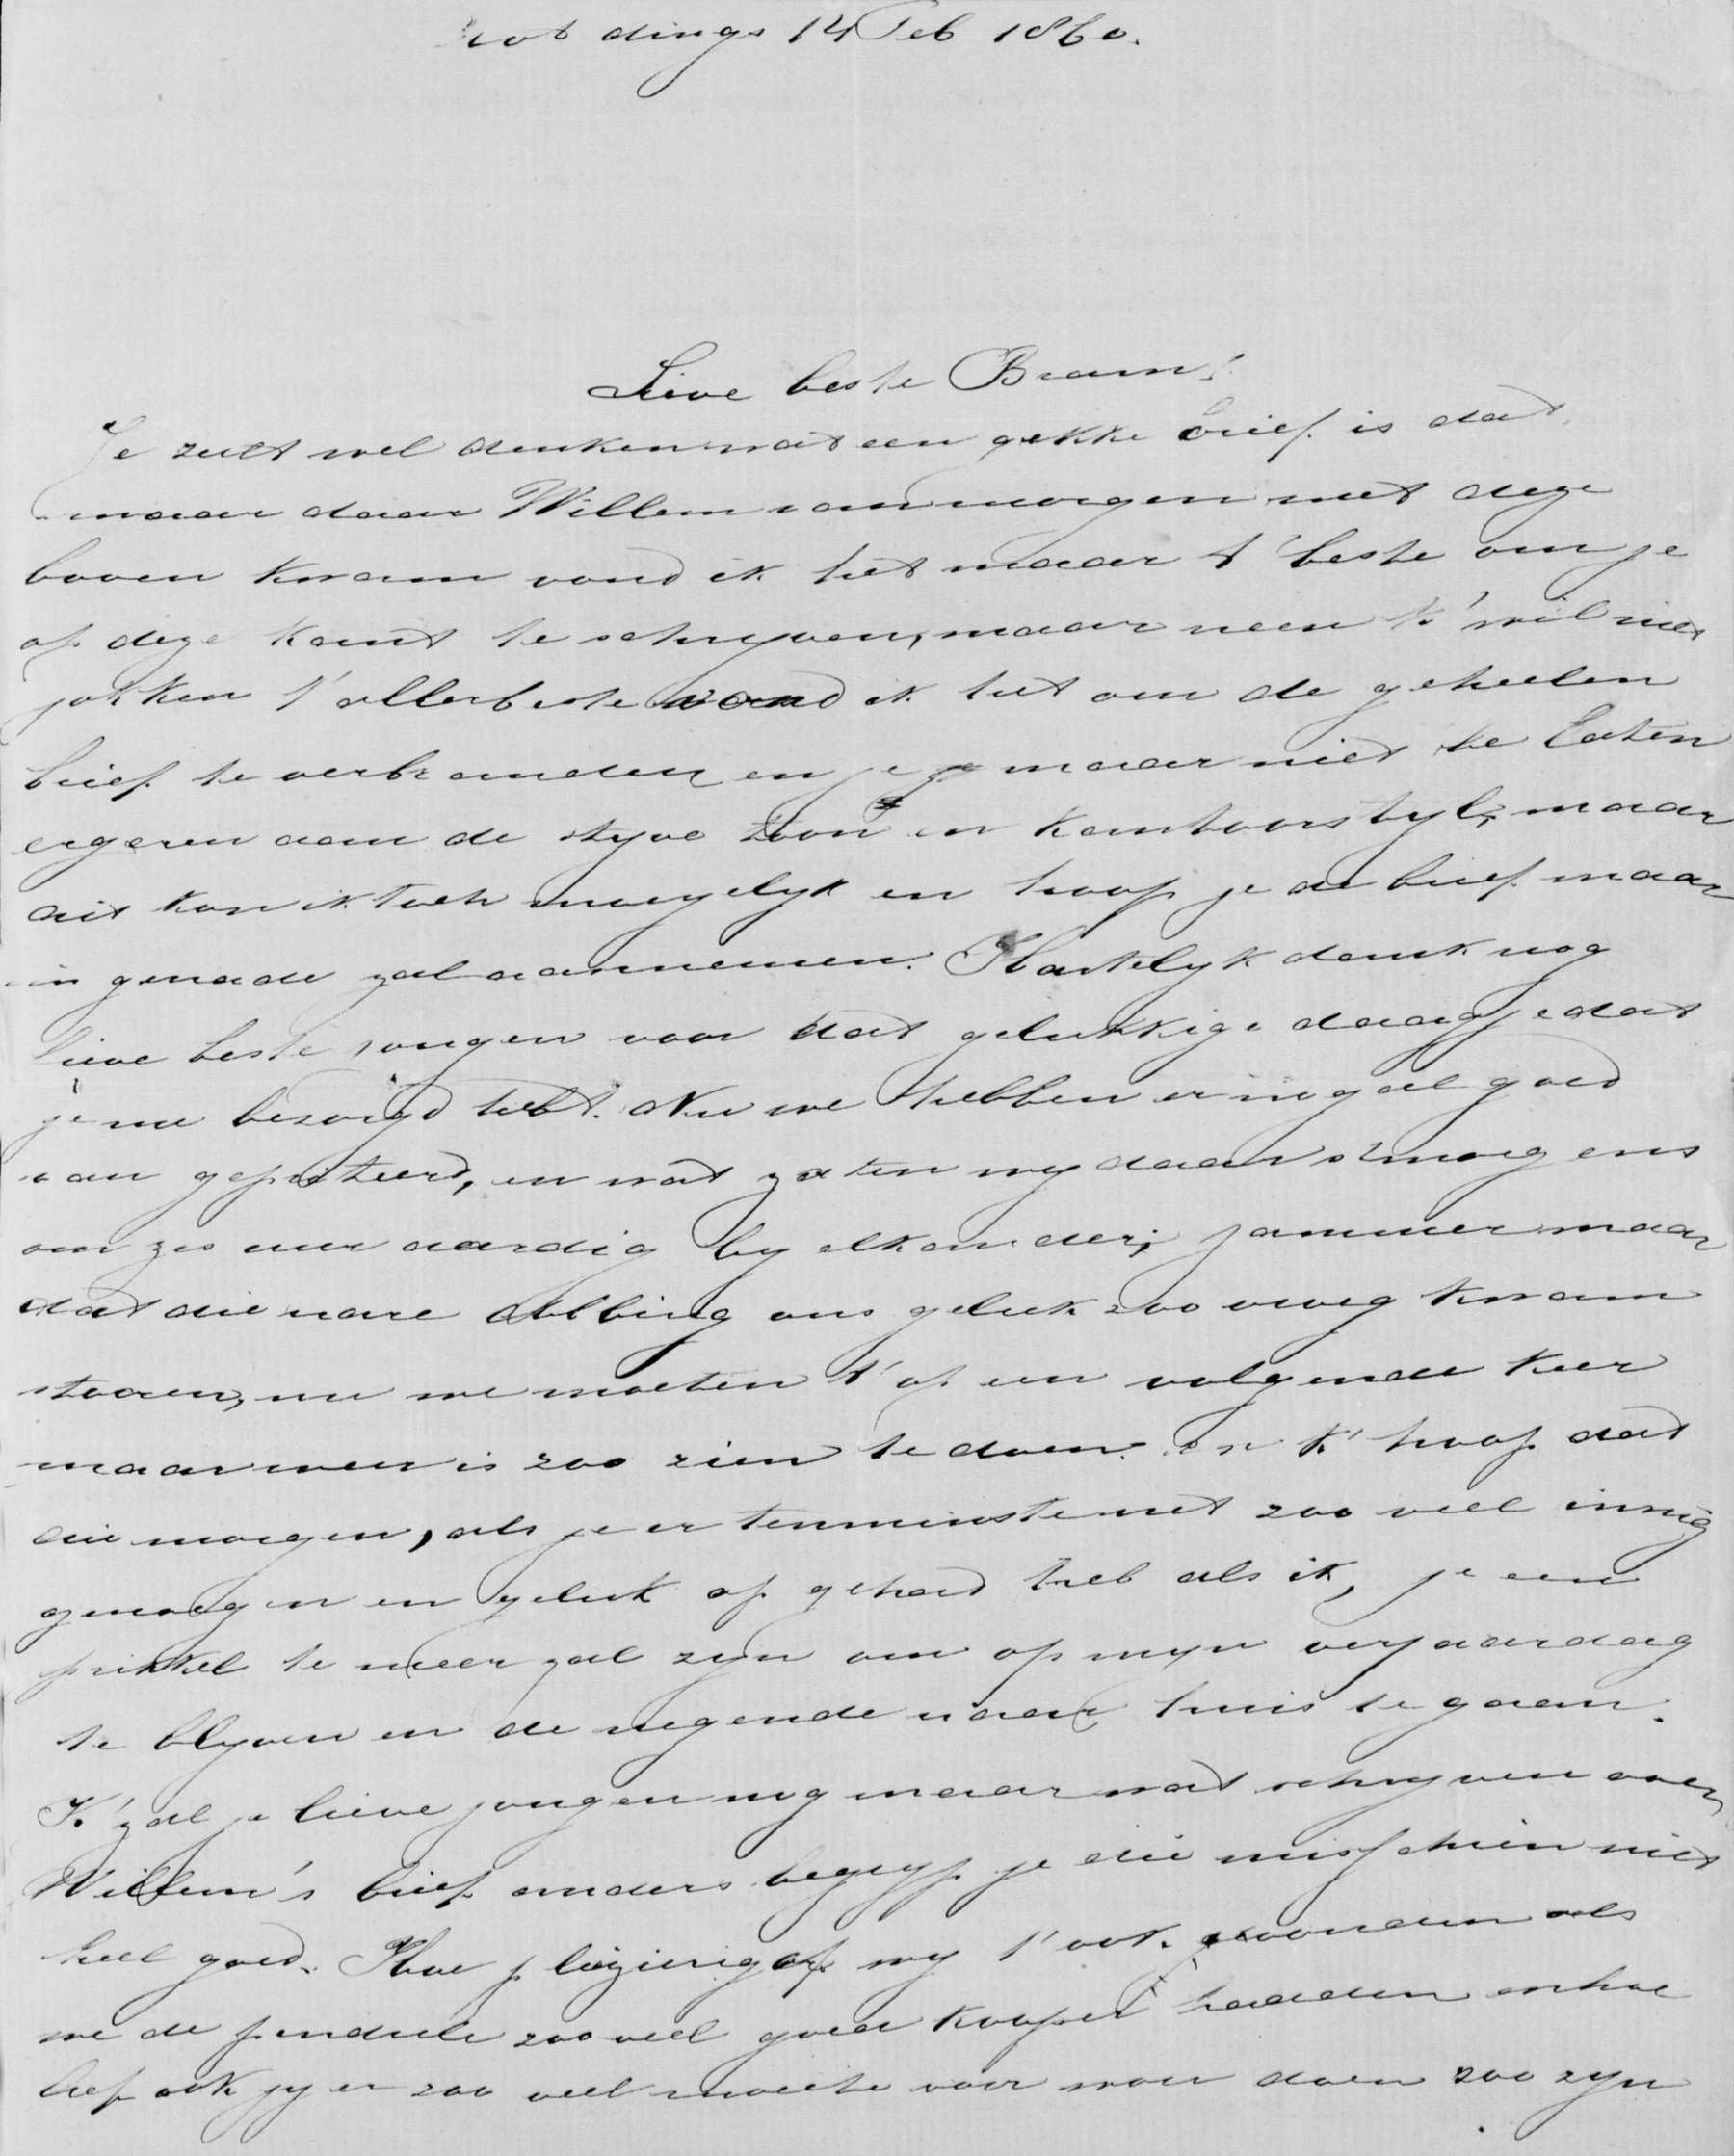 Rot dings 14 Feb 1860.
Lieve beste Bram!
Je zult wel denken wat een gekke brief is dat
maar daar Willem van morgen met deze
boven kwam vond ik het maar t' beste om je
op deze kant te schryven, maar neen k' wil niet
jokken t' allerbeste vond ik het om de geheelen
brief te verbranden en je maar niet te laten
ergeren aan de styve toon en kantoorstyl, maar
dit kon ik toch moeyelyk en hoop je de brief maar
in genade zal aannemen. Hartelyk dank nog
lieve beste jongen voor dat gelukkige daagje dat
je me bezorgd hebt. Nu we hebben er nog al goed
van geprofiteerd, en wat zaten wy daar smorgens
om zes uur aardig by elkander, jammer maar
dat die nare Abbing ons geluk zoo vroeg kwam
storen, nu we moeten t' op een volgende keer
maar weer is zoo zien te doen. en k' hoop dat
die morgen, als je er tenminste net zoo veel innig
genoegen en geluk op gehad heb als ik, je een
prikkel te meer zal zyn om op myn verjaardag
te blyven en de negende naar huis te gaan.
K' zal je lieve jongen nog maar wat schryven over
Willem's brief anders begryp je die misschien niet
heel goed. Hoe plezierig of wy t' ook vonden als
we de pendule zoo veel goed kooper hadden en hoe
lief ook jy er zoo veel moeite voor wou doen zoo zyn